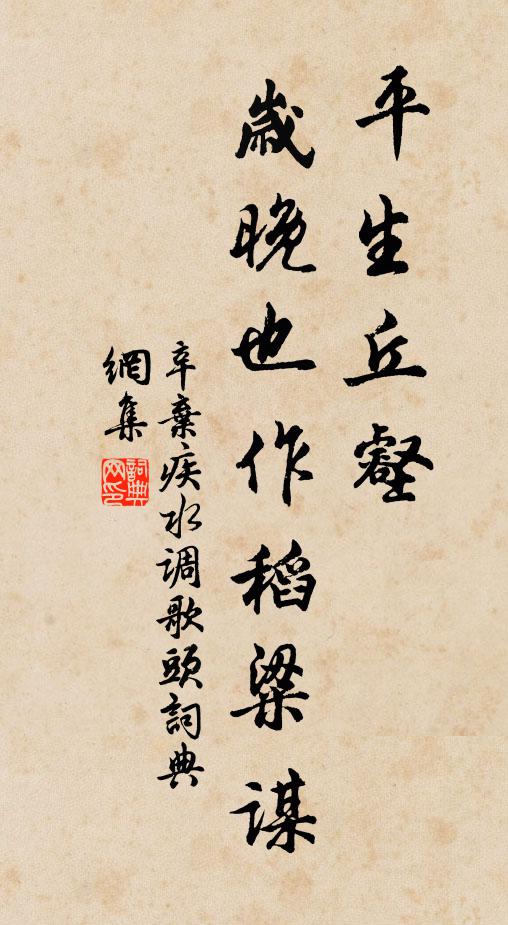 平生丘壑
歲晚也作稻粱謀
辛棄疾水调歌頭詞典
網集
詞典网印